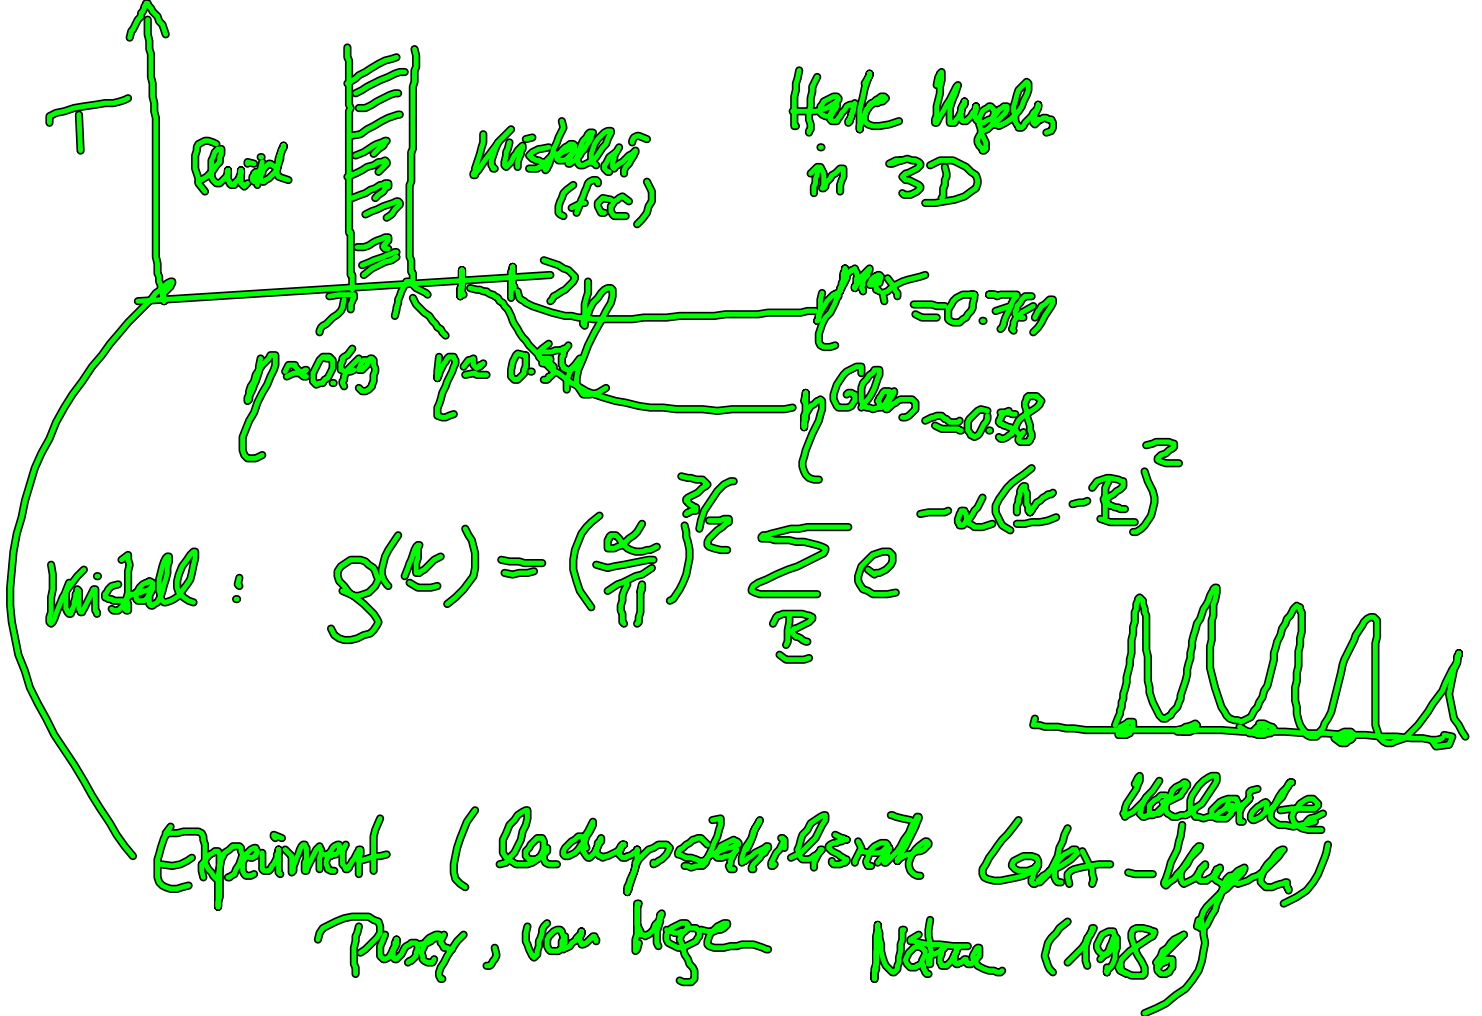 T
Fluid
Kristallin
(fcc)
Harte Kugeln
in 3D
η
η^max = 0.74
η ≈ 0.49
η ≈ 0.54
η^Glas ≈ 0.58
Kristall : ρ(r) = (α/π)^3/2 Σ_R e^-α(r - R)^2
Kolloide
Experiment (ladungsstabilisierte Latex-Kugeln)
Pusey, van Megen Nature (1986)